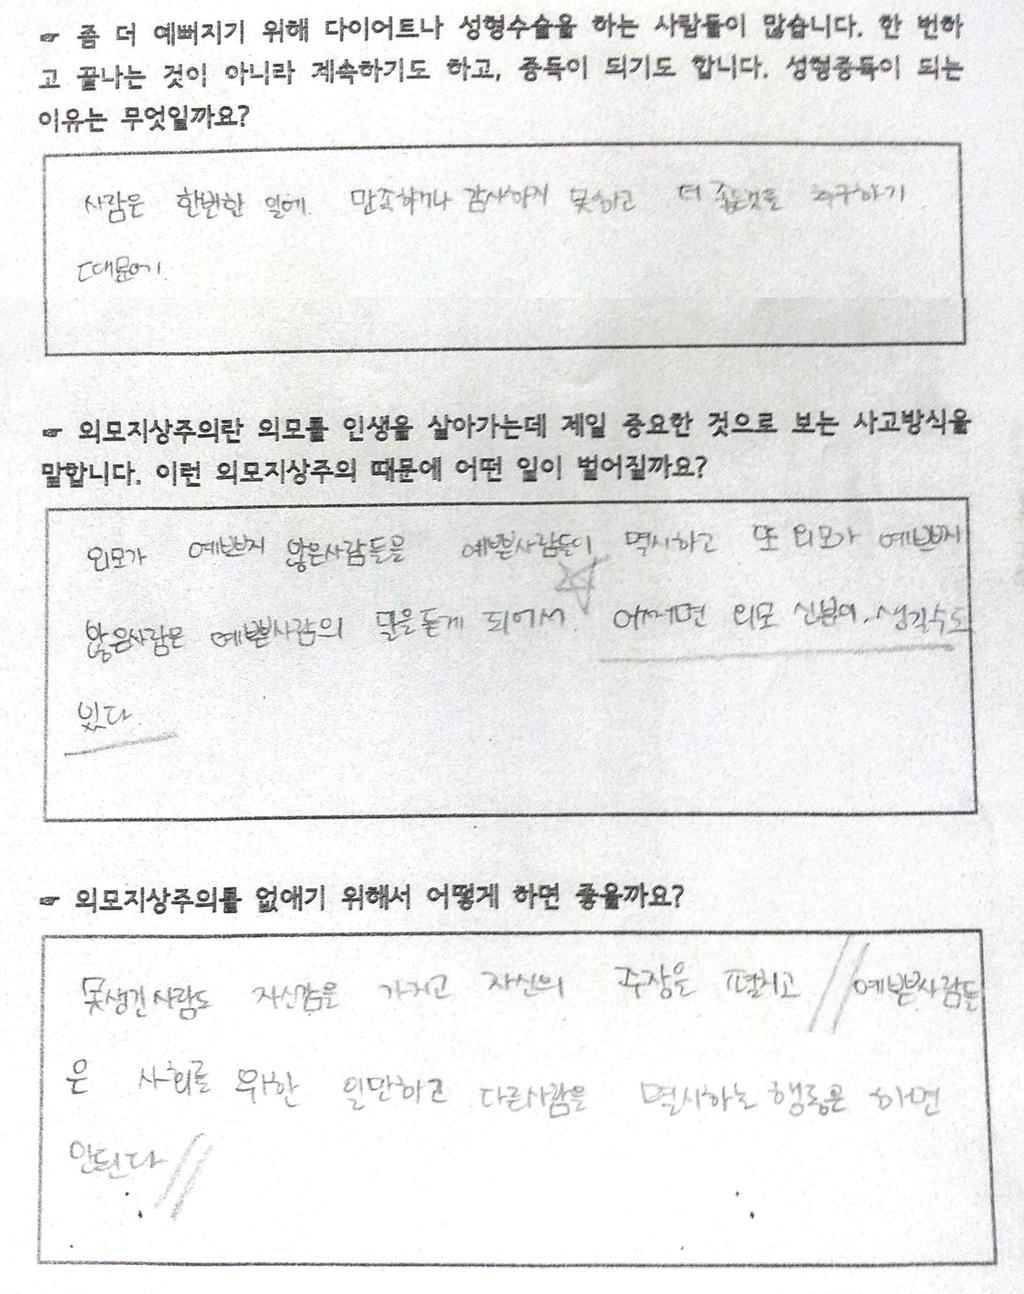 ☞ 좀 더 예뻐지기 위해 다이어트나 성형수술을 하는 사람들이 많습니다. 한 번하
고 끝나는 것이 아니라 계속하기도 하고, 중독이 되기도 합니다. 성형중독이 되는
이유는 무엇일까요?
사람은 한번한 일에 만족하거나 감사하지 못하고 더 좋은것을 추구하기
때문에.
☞ 외모지상주의란 외모를 인생을 살아가는데 제일 중요한 것으로 보는 사고방식을
말합니다. 이런 외모지상주의 때문에 어떤 일이 벌어질까요?
외모가 예쁘지 않은사람들을 예쁜사람들이 멸시하고 또 외모가 예쁘지
않은사람은 예쁜사람의 말을듣게 되어서 어쩌면 외모 신분이 생길수도
있다.
☞ 외모지상주의를 없애기 위해서 어떻게 하면 좋을까요?
못생긴사람도 자신감을 가지고 자신의 주장을 펼치고 예쁜사람들
은 사회를 위한 일만하고 다른사람을 멸시하는 행동은 하면
안된다